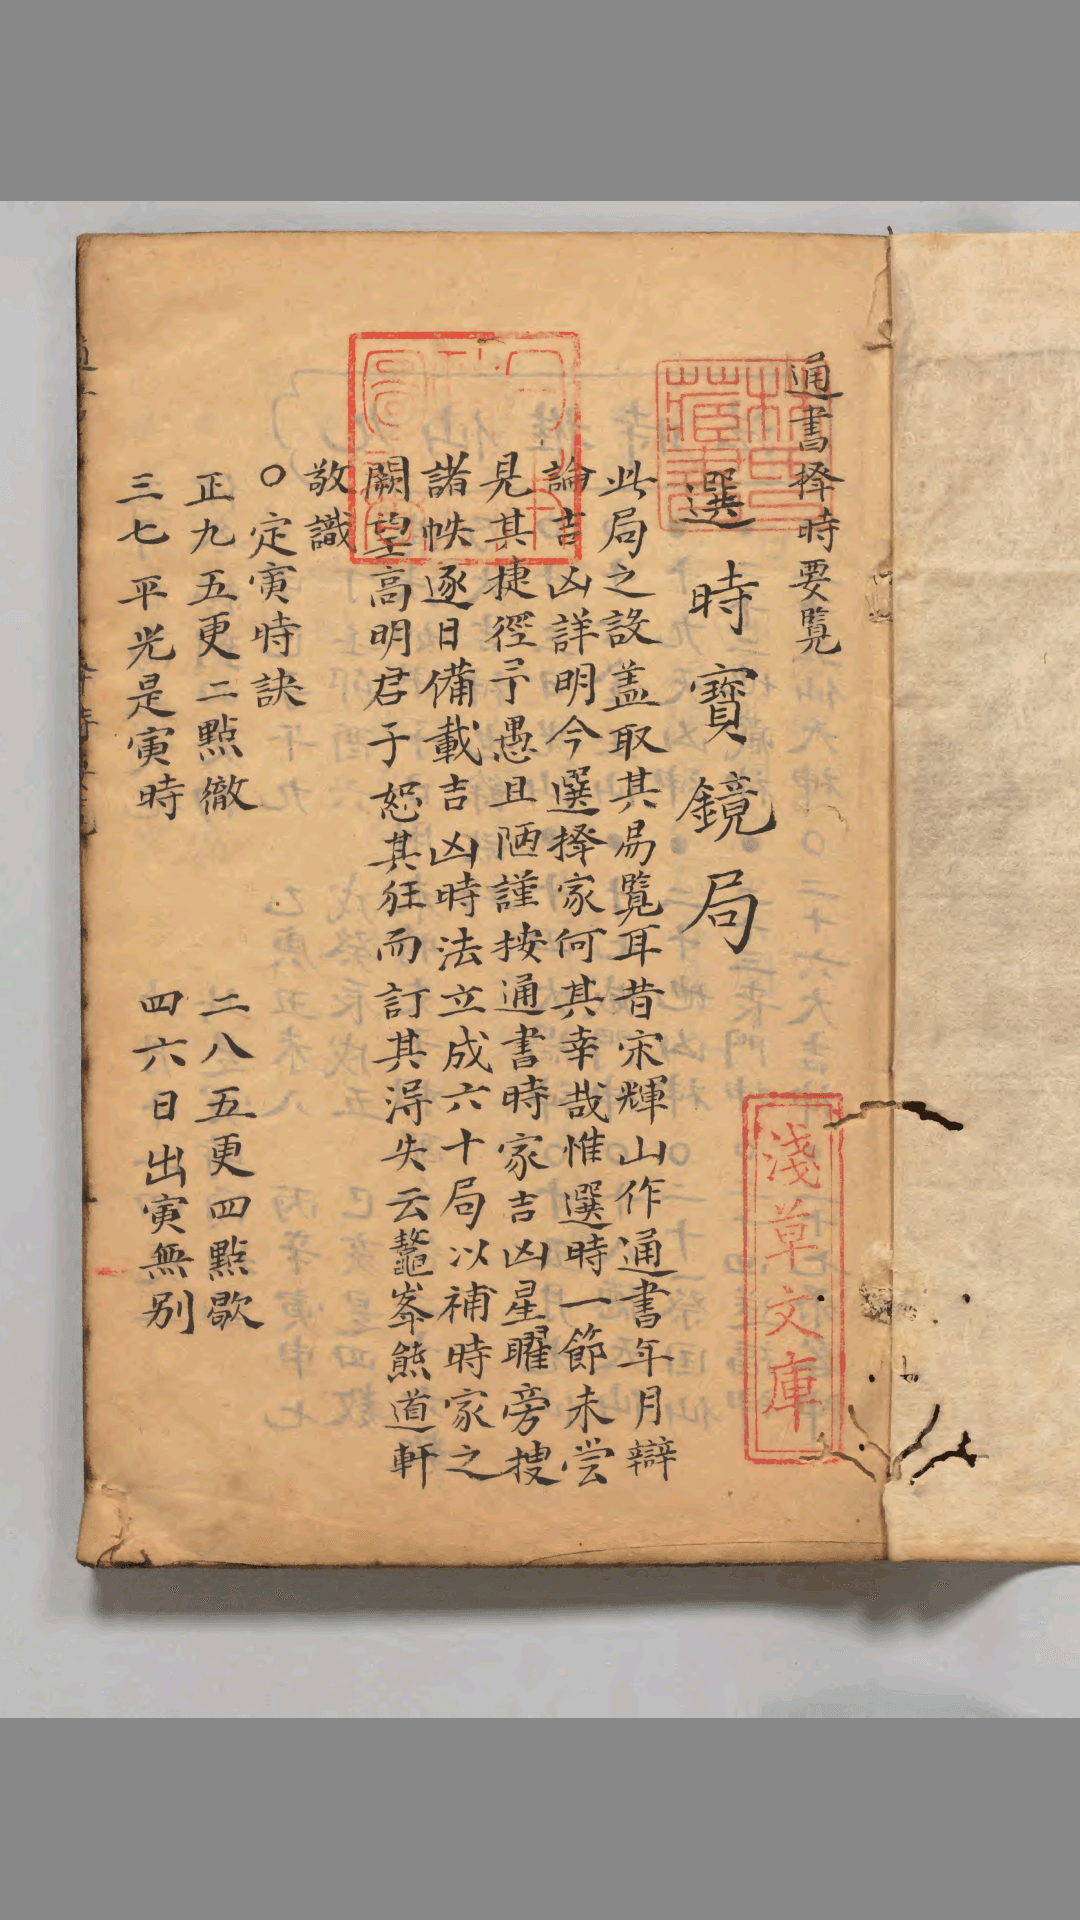 通書擇時要覧
選時寶鏡局
此局之設盖取其易覧耳昔宋輝山作通書年月辯
論吉凶詳明今選擇家何其幸哉惟選時一節未尝
見其捷徑予愚且陋謹按通書時家吉凶星曜旁搜
諸帙逐日備載吉凶時法立成六十局以補時家之
闕望高明君子恕其狂而訂其淂失云鼇峯熊道軒
敬識
○定寅時訣
正九五更二點徹 二八五更四點歇
三七平光是寅時 四六日出寅無别
淺草文庫